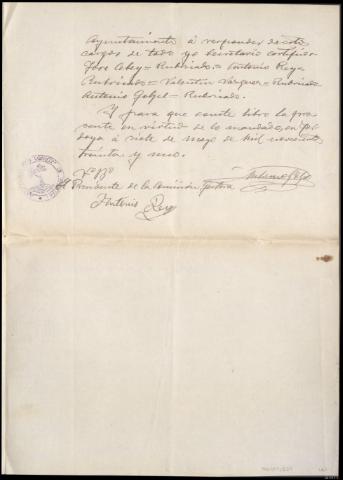 Ayuntamiento á responder de este
cargos de todo yo Secretario certifico
José = Rubricado. = Antonio Rey =
Rubricado = Valentin Vazquez = Rubricado
Antonio = Rubricado.
Y para que conste libro la pre
sente en virtud de lo mandado, en
á siete de mayo de mil novecientos
treinta y uno.
Vº Bº
El Presidente de la Comisión Gestora
Antonio Rey